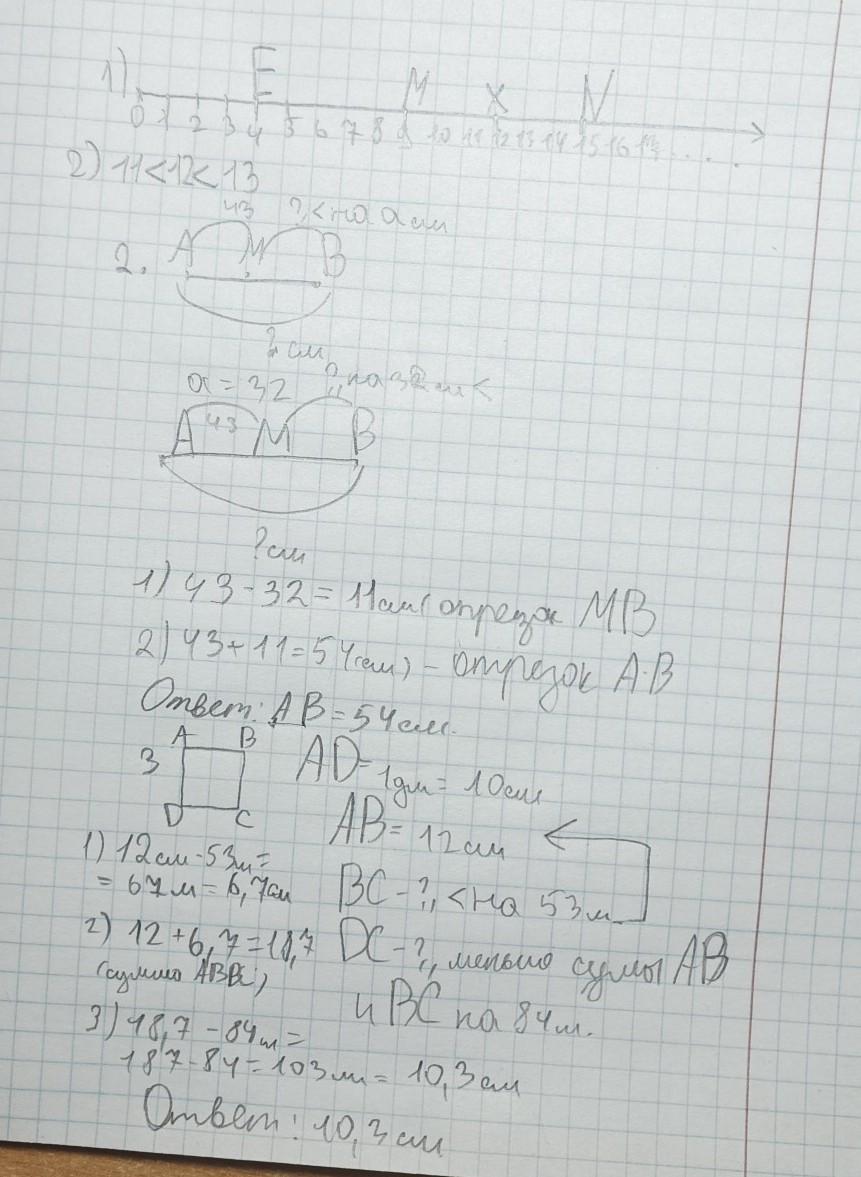 1) E M X N
0 1 2 3 4 5 6 7 8 9 10 11 12 13 14 15 16 17 . . . .
2) 11<12<13
43 ?, < на a см
2. A M B
? см
a = 32 ?, на 32 см <
A 43 M B
? см
1) 43 - 32 = 11 см (отрезок MB
2) 43 + 11 = 54 (см) - отрезок AB
Ответ: AB = 54 см.
3 A B
D C
AD = 1 дм = 10 см
AB = 12 см
BC - ?, < на 53 м
DC - ?, меньше сумы AB
и BC на 84 м.
1) 12 см - 53 м =
= 67 м = 6,7 см
2) 12 + 6,7 = 18,7
(сумма ABBC)
3) 18,7 - 84 м =
187 - 84 = 103 м = 10,3 см
Ответ: 10,3 см